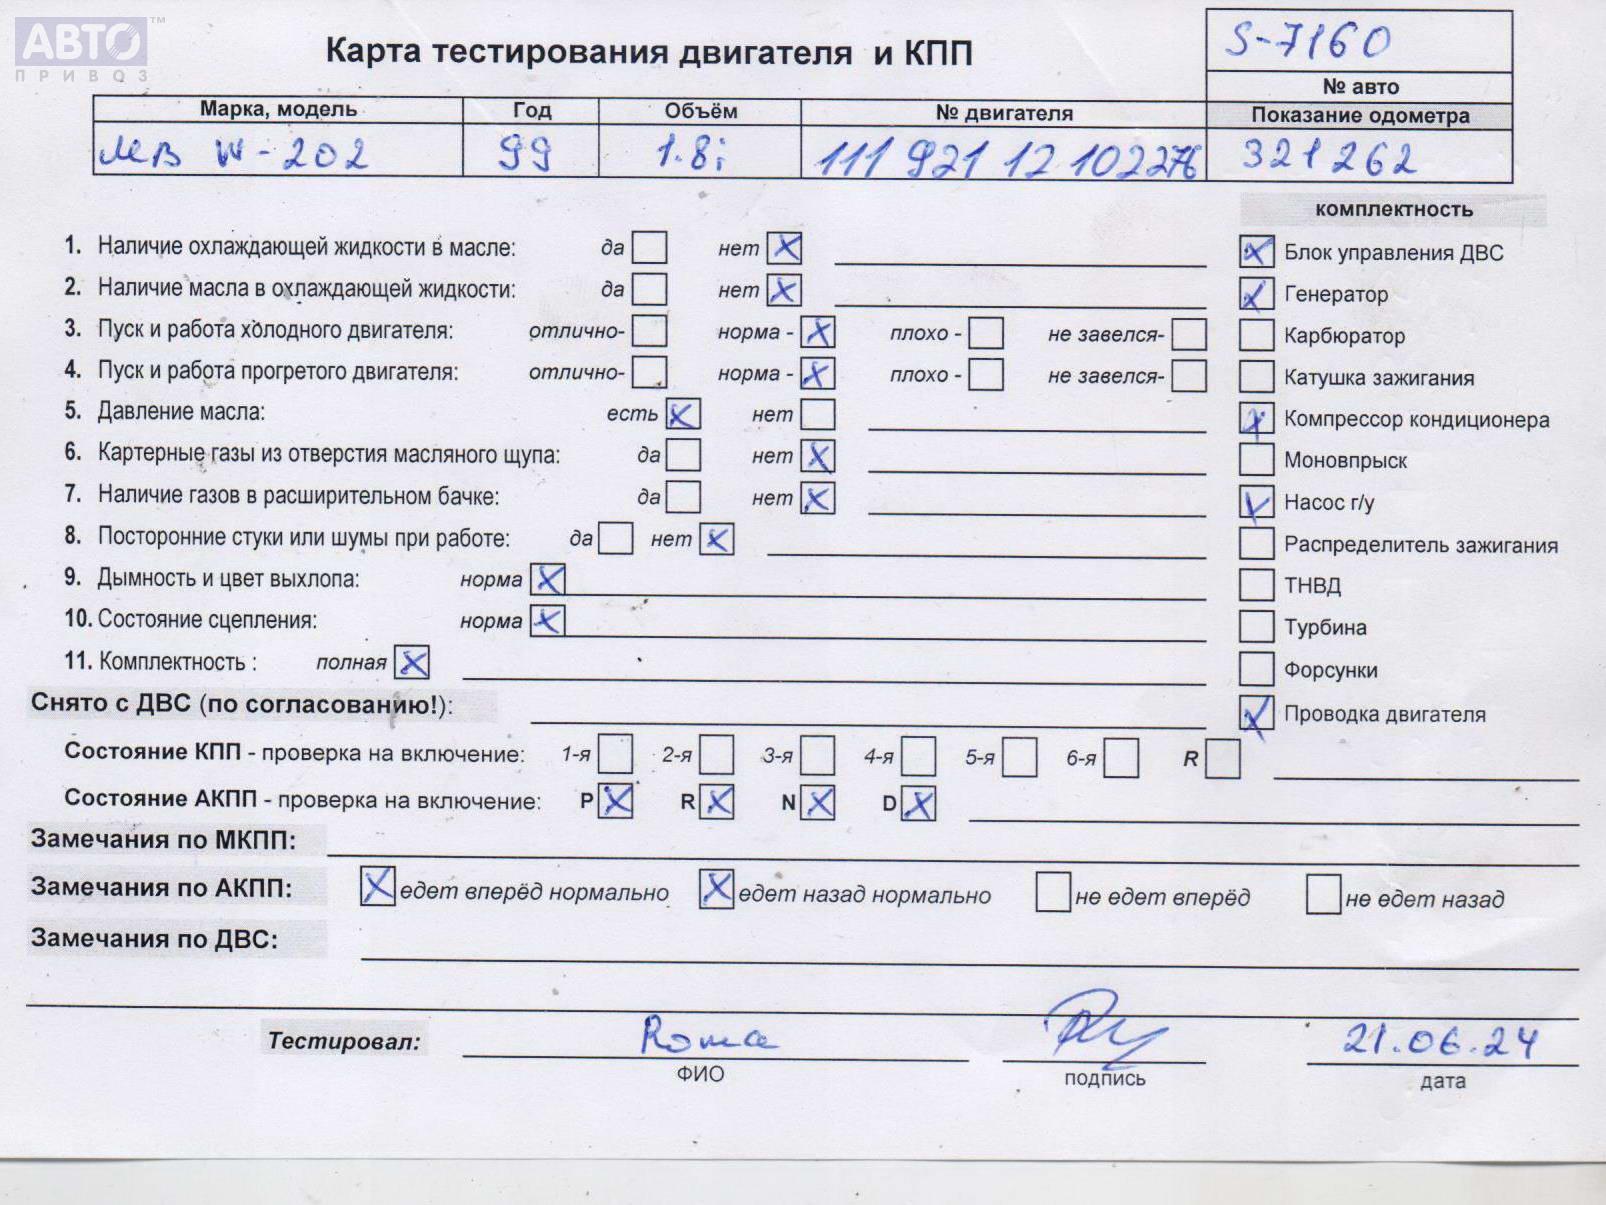 АВТО™
ПРИВОЗ
Карта тестирования двигателя и КПП
S-7160
№ авто
Марка, модель Год Объём № двигателя Показание одометра
MB W-202 99 1.8i 111 921 12 102276 321262
комплектность
1. Наличие охлаждающей жидкости в масле: да нет Блок управления ДВС
2. Наличие масла в охлаждающей жидкости: да нет Генератор
3. Пуск и работа холодного двигателя: отлично- норма - плохо - не завелся- Карбюратор
4. Пуск и работа прогретого двигателя: отлично- норма - плохо - не завелся- Катушка зажигания
5. Давление масла: есть нет Компрессор кондиционера
6. Картерные газы из отверстия масляного щупа: да нет Моновпрыск
7. Наличие газов в расширительном бачке: да нет Насос г/у
8. Посторонние стуки или шумы при работе: да нет Распределитель зажигания
9. Дымность и цвет выхлопа: норма ТНВД
10. Состояние сцепления: норма Турбина
11. Комплектность : полная Форсунки
Снято с ДВС (по согласованию!): Проводка двигателя
Состояние КПП - проверка на включение: 1-я 2-я 3-я 4-я 5-я 6-я R
Состояние АКПП - проверка на включение: P R N D
Замечания по МКПП:
Замечания по АКПП: едет вперёд нормально едет назад нормально не едет вперёд не едет назад
Замечания по ДВС:
Тестировал: Roma 21.06.24
ФИО подпись дата